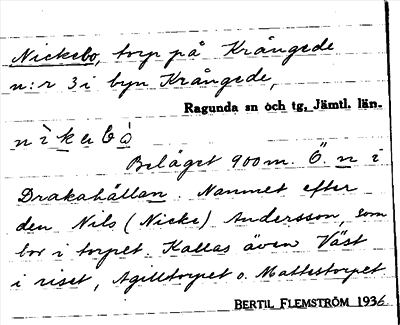 Nickebo, torp på Krångede
n:r 3 i byn Krångede,
Ragunda sn och tg, Jämtl. län.
Beläget 900 m. Ö. n i
Drakahällan. Namnet efter
den Nils (Nicke) Andersson, som
bor i torpet. Kallas även Väst
i riset, Agilltorpet o. Mattestorpet
BERTIL FLEMSTRÖM 1936